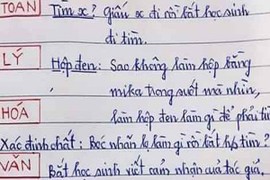 TOÁN Tìm x? Giấu x đi rồi bắt học sinh
đi tìm.
LÝ Hộp đen: Sao không làm hộp bằng
mika trong suốt mà nhìn,
làm hộp đen làm gì để phải tìm
HÓA
Xác định chất: Bóc nhãn lọ làm gì rồi bắt hs tìm?
VĂN Bắt học sinh viết cảm nhận của tác giả,